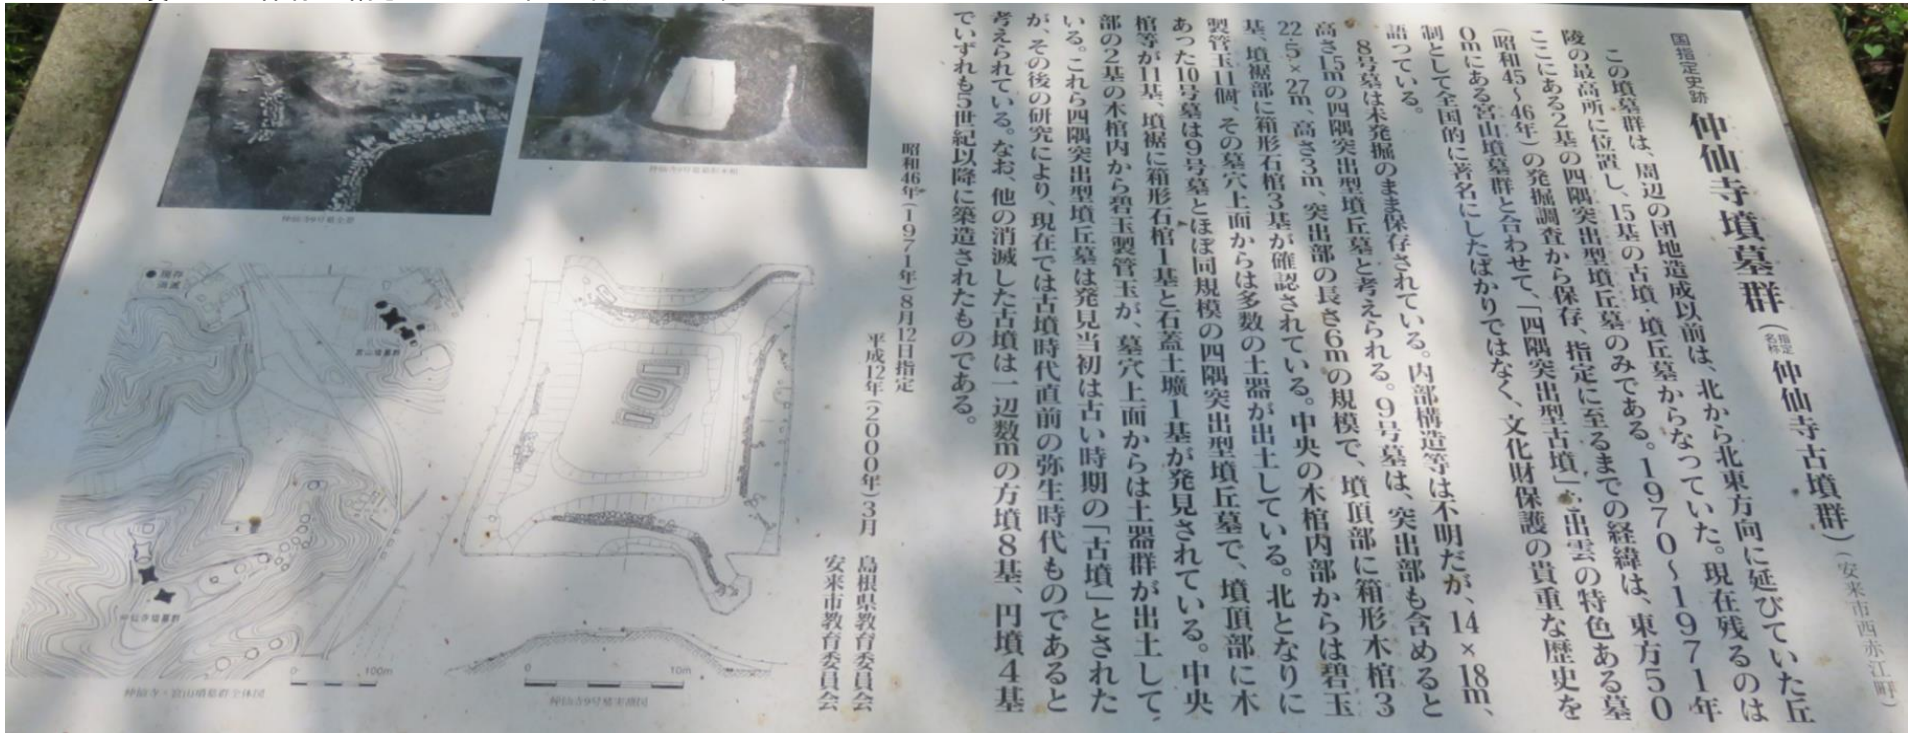 国指定史跡 仲仙寺墳墓群(指定名称 仲仙寺古墳群)(安来市西赤江町)
この墳墓群は、周辺の団地造成以前は、北から北東方向に延びていた丘
陵の最高所に位置し、15基の古墳・墳丘墓からなっていた。現在残るのは
ここにある2基の四隅突出型墳丘墓のみである。1970〜1971年
(昭和45〜46年)の発掘調査から保存、指定に至るまでの経緯は、東方50
0mにある宮山墳墓群と合わせて、「四隅突出型古墳」:出雲の特色ある墓
制として全国的に著名にしたばかりではなく、文化財保護の貴重な歴史を
語っている。
8号墓は未発掘のまま保存されている。内部構造等は不明だが、14×18m、
高さ1.5mの四隅突出型墳丘墓と考えられる。9号墓は、突出部も含めると
22.5×27m、高さ3m、突出部の長さ6mの規模で、墳頂部に箱形木棺3
基、墳裾部に箱形石棺3基が確認されている。中央の木棺内部からは碧玉
製管玉11個、その墓穴上面からは多数の土器が出土している。北となりに
あった10号墓は9号墓とほぼ同規模の四隅突出型墳丘墓で、墳頂部に木
棺等が11基、墳裾に箱形石棺1基と石蓋土壙1基が発見されている。中央
部の2基の木棺内から碧玉製管玉が、墓穴上面からは土器群が出土して
いる。これら四隅突出型墳丘墓は発見当初は古い時期の「古墳」とされた
が、その後の研究により、現在では古墳時代直前の弥生時代ものであると
考えられている。なお、他の消滅した古墳は一辺数mの方墳8基、円墳4基
でいずれも5世紀以降に築造されたものである。
昭和46年(1971年)8月12日指定
平成12年(2000年)3月
島根県教育委員会
安来市教育委員会
仲仙寺9号墓全景
現存
消滅
宮山墳墓群
仲仙寺墳墓群
0 100m
仲仙寺・宮山墳墓群全体図
0 10m
仲仙寺9号墓実測図